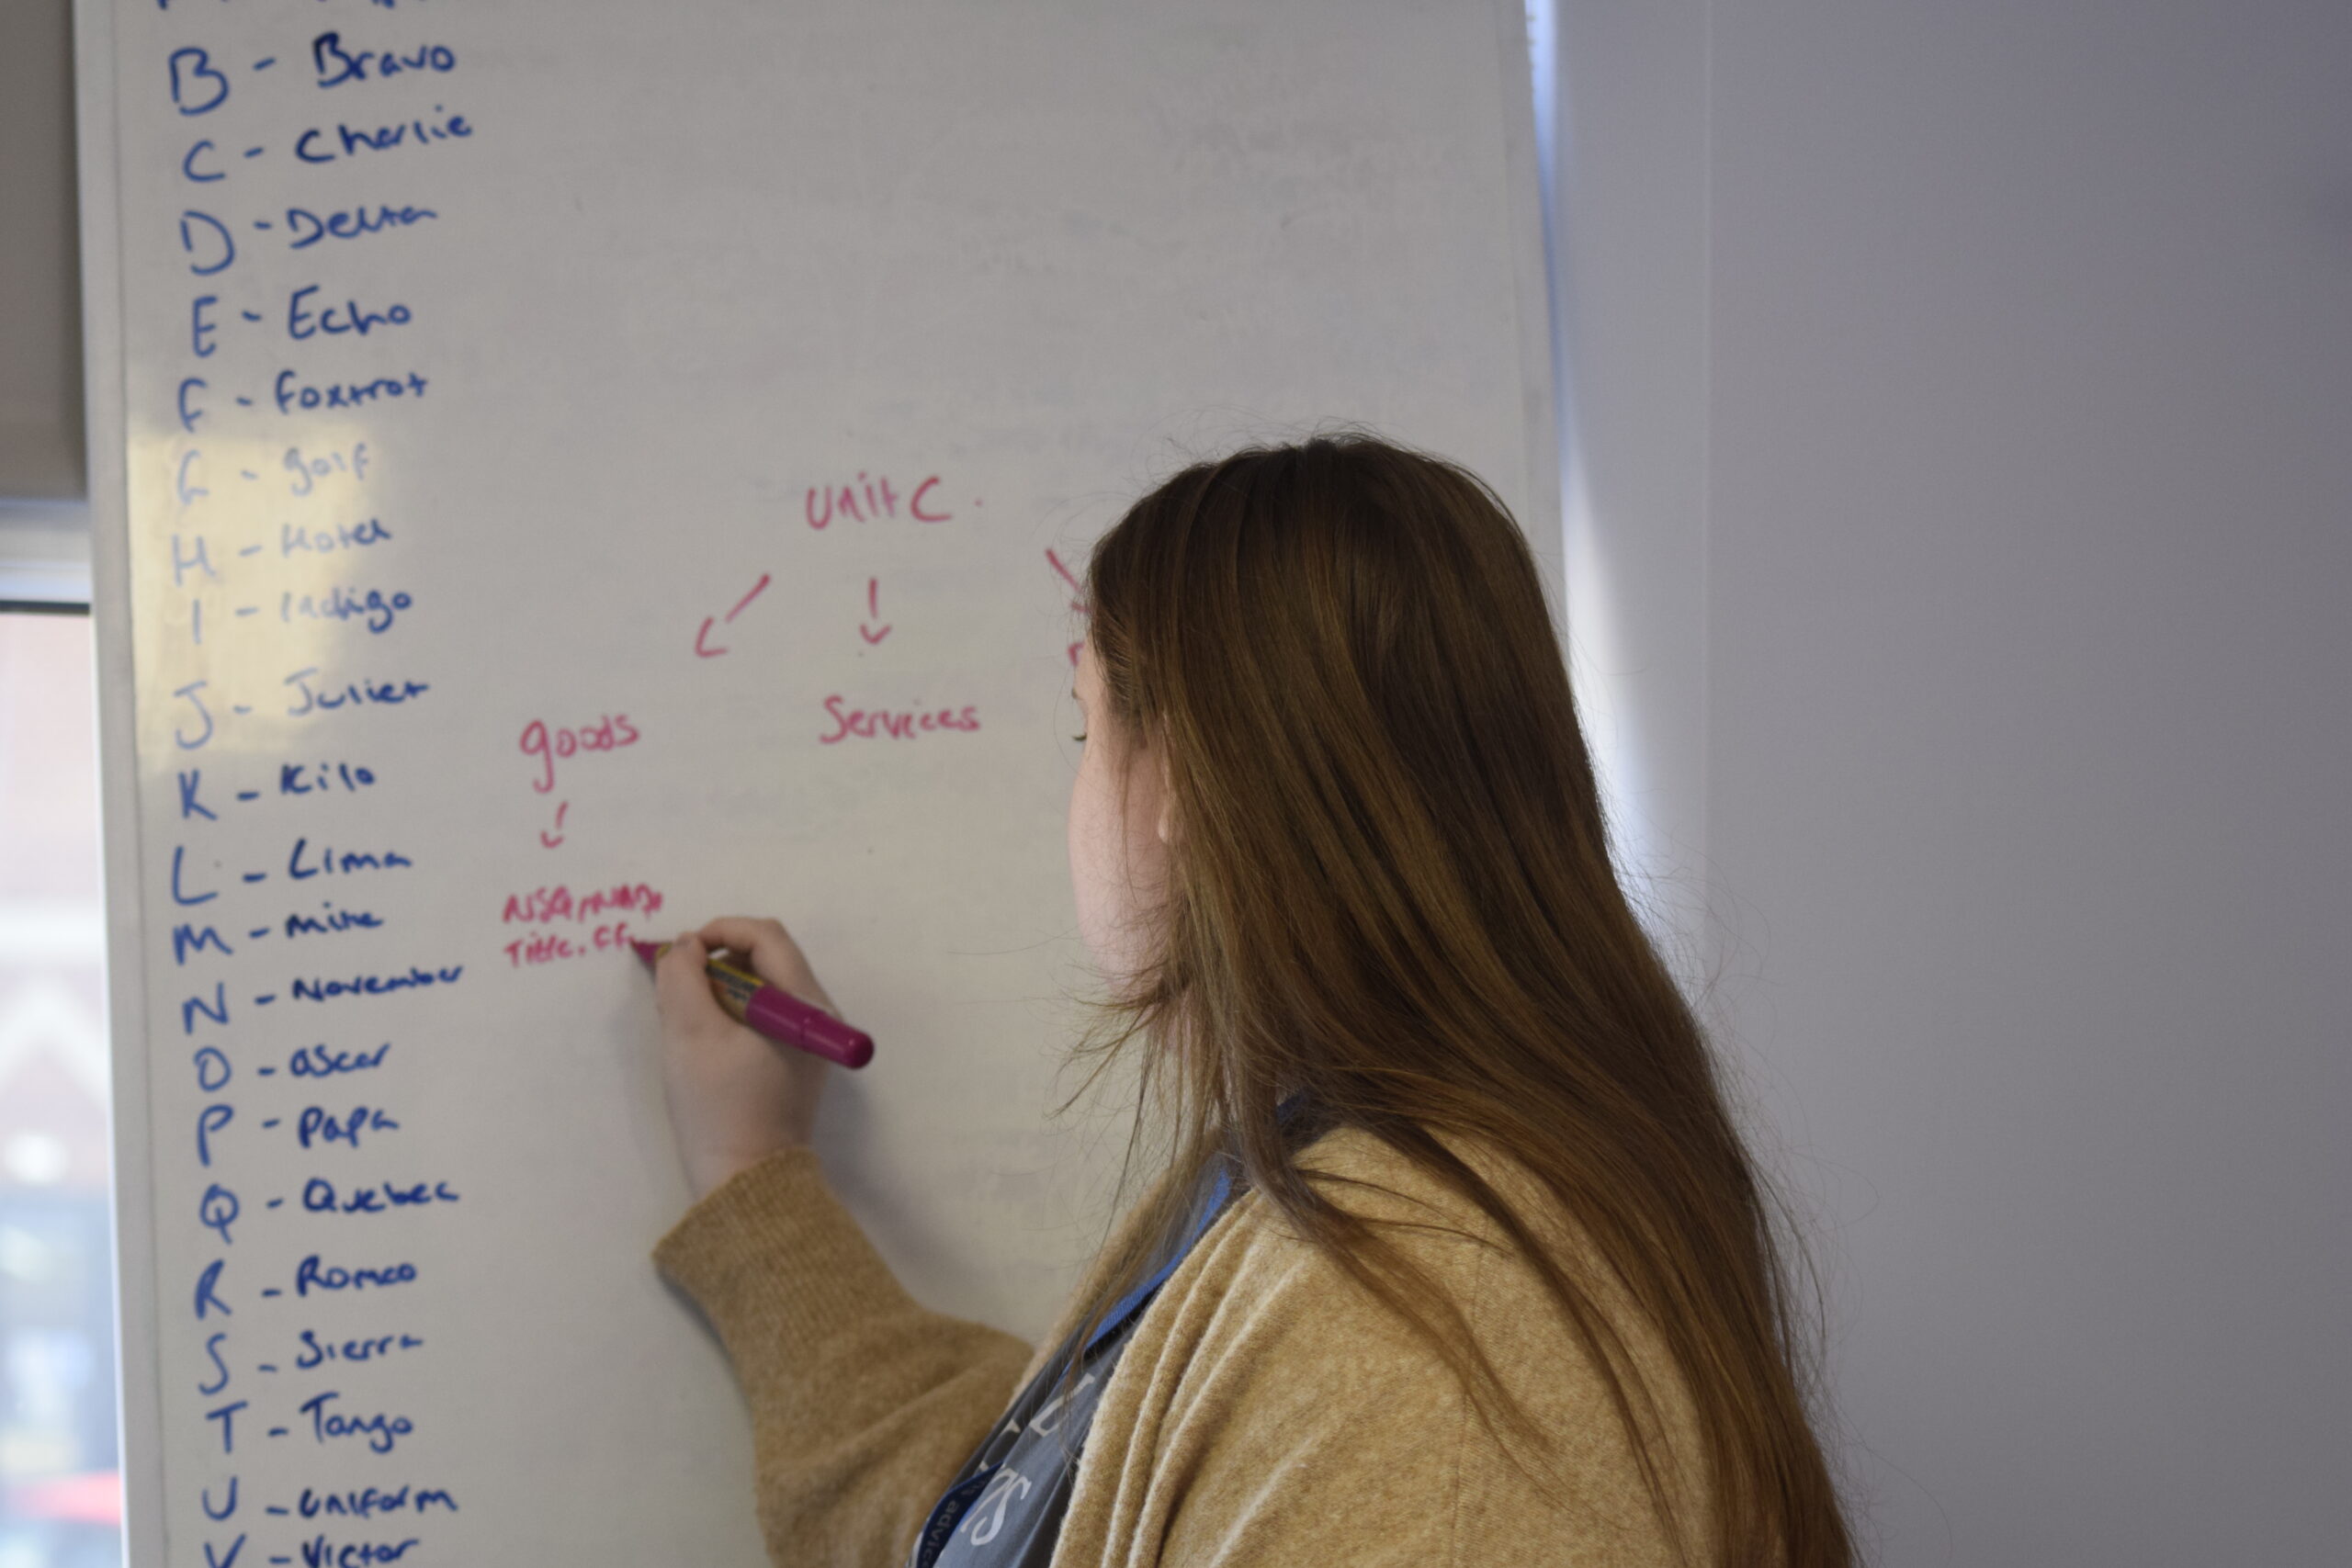 B - Bravo
C - Charlie
D - Delta
E - Echo
F - Foxtrot
G - golf
H - Hotel
I - Indigo
J - Juliet
K - Kilo
L - Lima
M - Mike
N - November
O - Oscar
P - Papa
Q - Quebec
R - Romeo
S - Sierra
T - Tango
U - Uniform
V - Victor
Unit C.
goods
Services
Title.